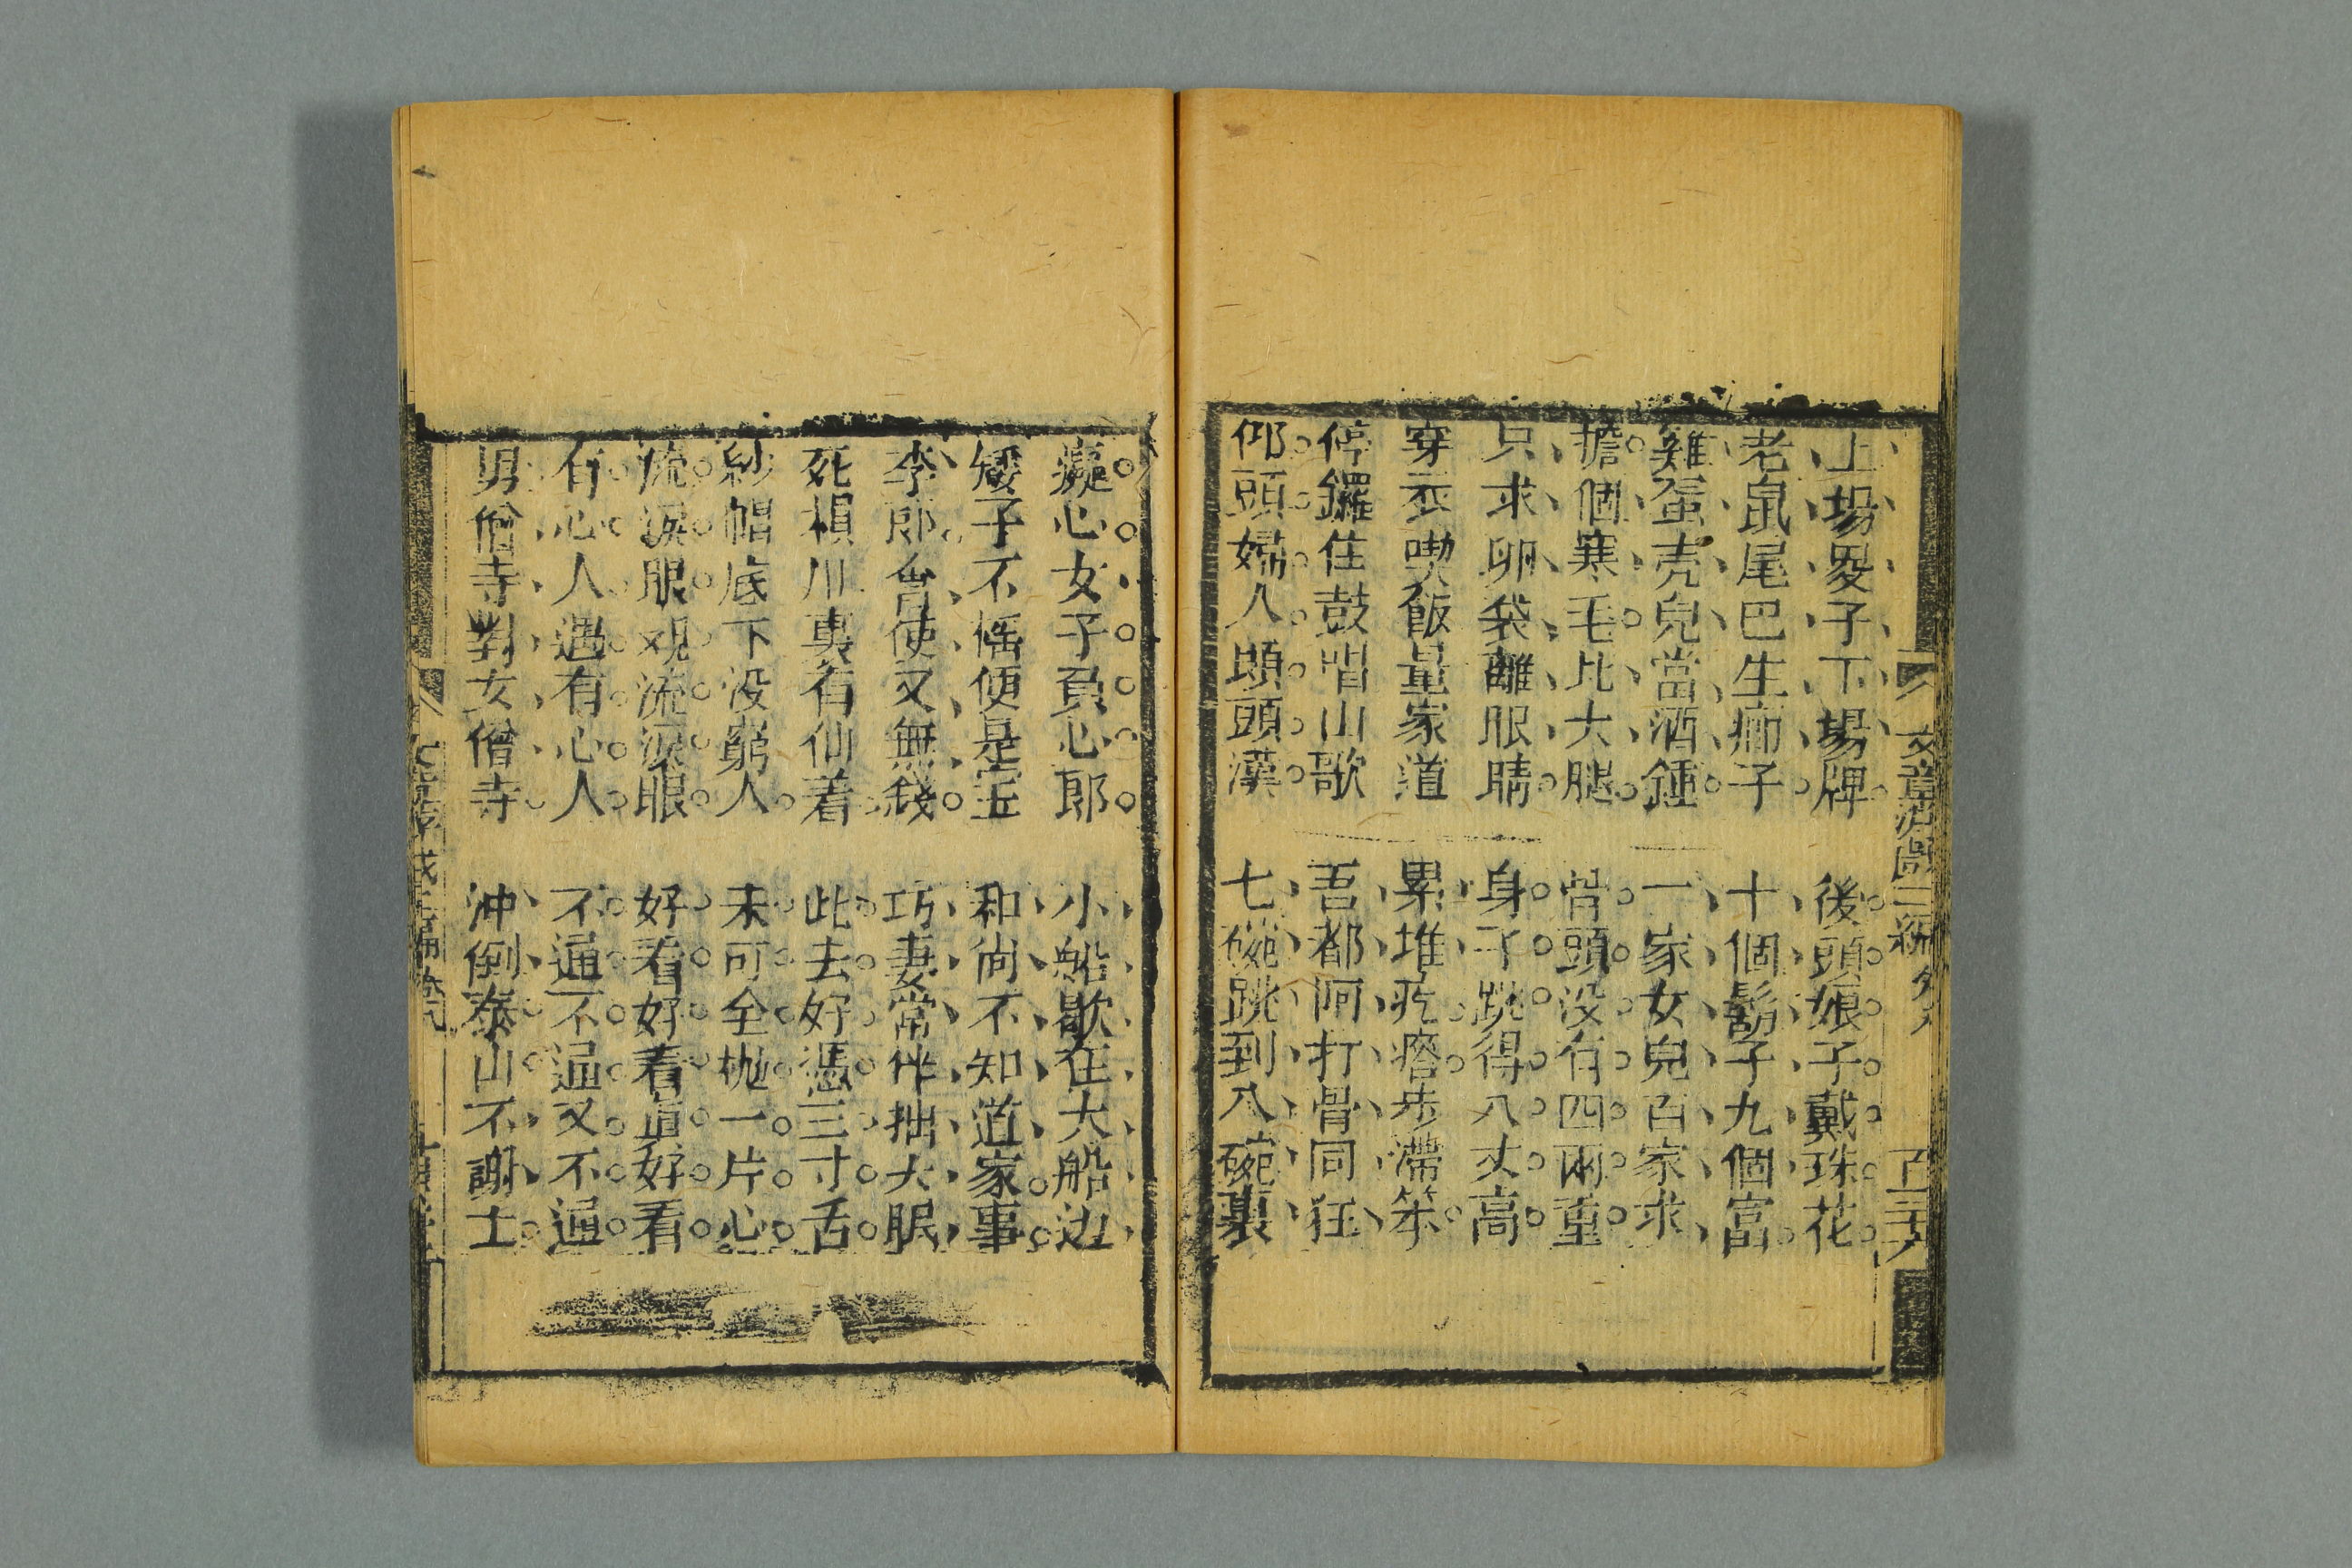 上場婆子下場牌　後頭娘子戴珠花
老鼠尾巴生癤子　十個鬍子九個富
雞蛋壳兒當酒鍾　一家女兒百家求
擔個寒毛比大腿　骨頭没有四兩重
只求卵袋離眼睛　身子跳得八丈高
穿衣喫飯量家道　累堆疙瘩步滯笨
停鑼住鼓唱山歌　吾都阿打骨同狂
仰頭婦人頭漢　七碗跳到八碗裏
文章游戲二編 卷八
癡心女子負心郎　小船歇在大船边
矮子不  便是宝　和尚不知道家事
李郎會使又無錢　巧妻常伴拙夫眠
死棋川裏有仙着　此去好憑三寸舌
紗帽底下没窮人　未可全拋一片心
流淚眼观流淚眼　好看好看真好看
有心人遇有心人　不通不通又不通
男僧寺對女僧寺　沖倒泰山不謝土